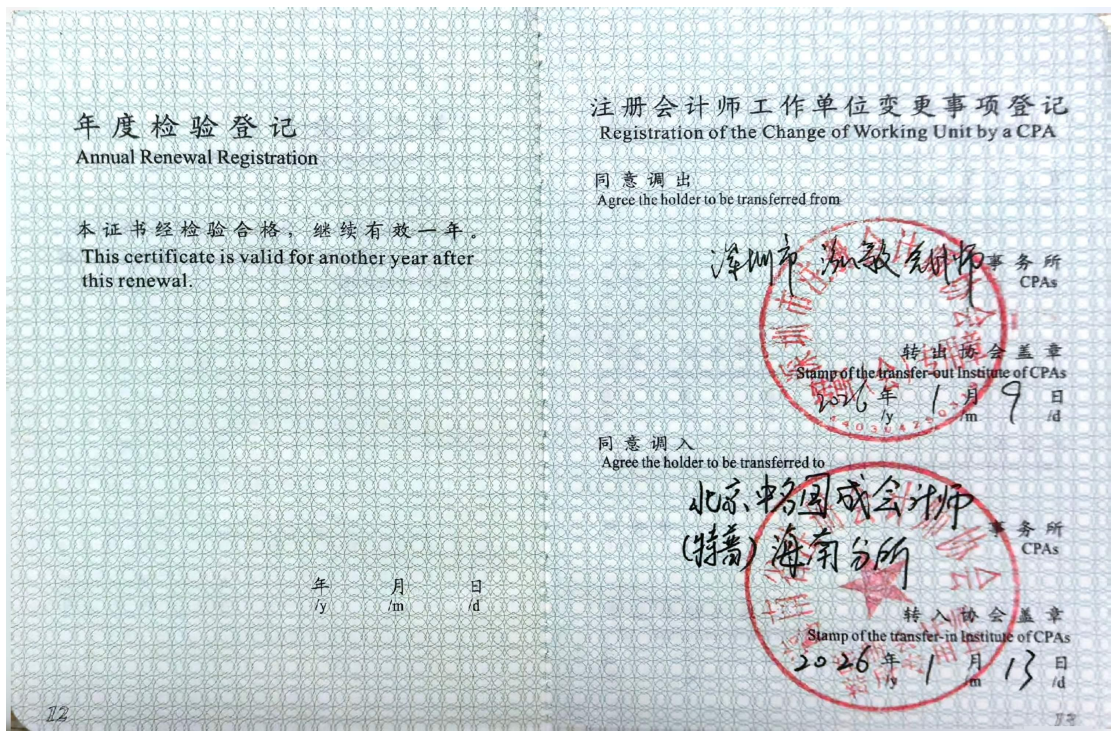 年度检验登记
Annual Renewal Registration
本证书经检验合格，继续有效一年。
This certificate is valid for another year after
this renewal.
年 月 日
/y /m /d
12
注册会计师工作单位变更事项登记
Registration of the Change of Working Unit by a CPA
同意调出
Agree the holder to be transferred from
深圳市泓毅会计师事务所
CPAs
深圳市注册会计师协会
转出协会盖章
Stamp of the transfer-out Institute of CPAs
2026年 1月 9日
/y /m /d
同意调入
Agree the holder to be transferred to
北京中名国成会计师
(特普)海南分所 事务所
CPAs
海南省注册会计师协会
转入协会盖章
Stamp of the transfer-in Institute of CPAs
2026年 1月 13日
/y /m /d
13